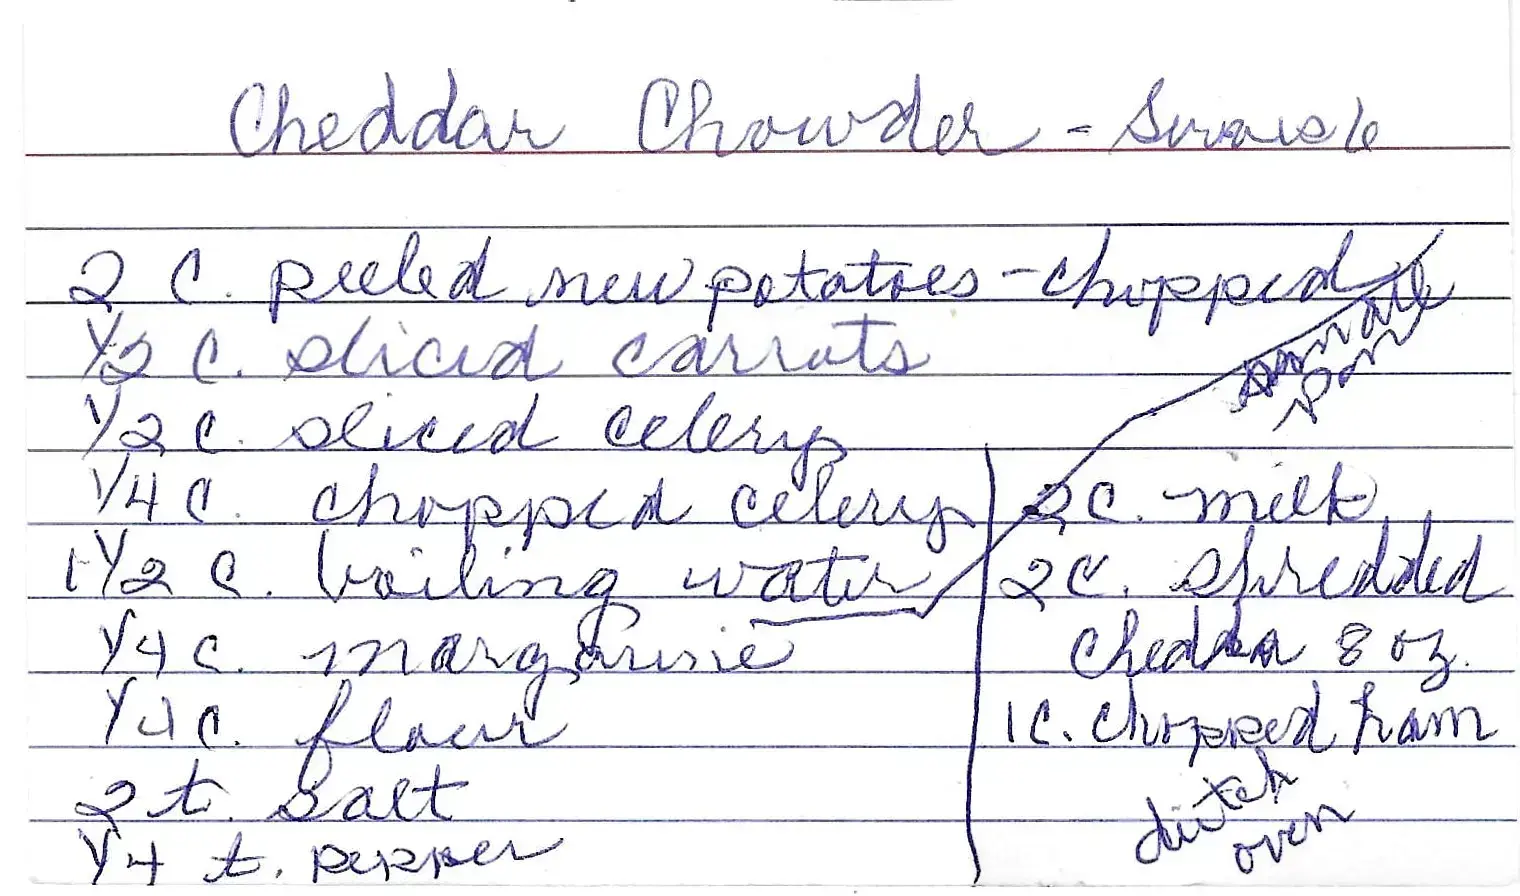 Cheddar Chowder - Serves 6
2 C. peeled new potatoes - chopped
1/2 C. sliced carrots
1/2 C. sliced celery
1/4 C. chopped celery
1 1/2 C. boiling water
1/4 C. margarine
1/4 C. flour
2 t. salt
1/4 t. pepper
pan
2 C. milk
2 C. shredded
chedda 8 oz.
1 C. chopped ham
dutch
oven